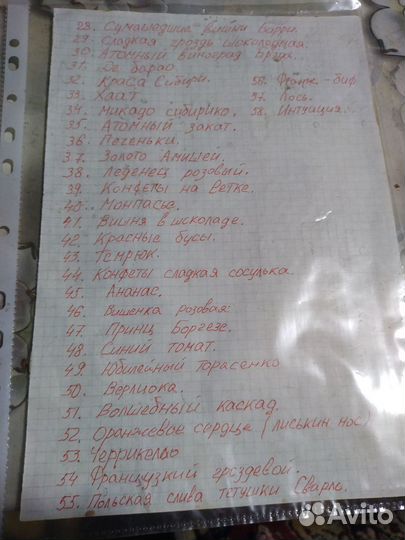 28. Сумашедшие вишни Барри.
29. Сладкая гроздь шоколадная.
30. Атомный виноград Бреда.
31. Де барао
32. Краса Сибири. 56. Франк-биф
33. Хаат 57. Лось.
34. Микадо сибирико. 58. Интуиция.
35. Атомный закат.
36. Печеньки.
37. Золото Амишей.
38. Леденец розовый.
39. Конфеты на ветке.
40. Монпасье.
41. Вишня в шоколаде.
42. Красные бусы.
43. Темрюк.
44. Конфеты сладкая сосулька.
45. Ананас.
46. Вишенка розовая.
47. Принц Боргезе.
48. Синий томат.
49. Юбилейный тарасенко
50. Верлиока.
51. Волшебный каскад.
52. Оранжевое сердце (лиськин нос)
53. Черрикелло
54. Французкий гроздевой.
55. Польская слива тётушки Сварло.
Avito